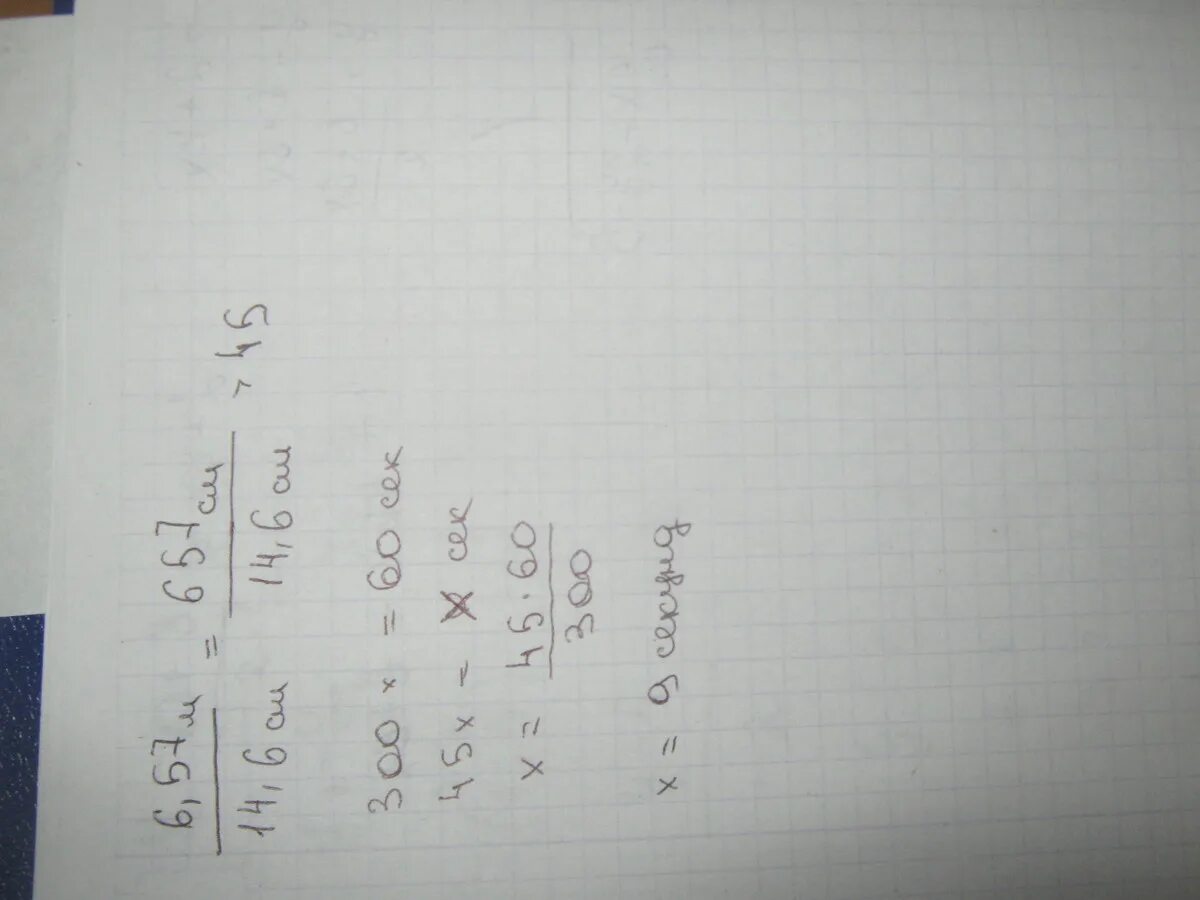 6,57м / 14,6 см = 657см / 14,6 см = 45
300 x = 60 сек
45x - x сек
x = 45·60 / 300
x = 9 секунд